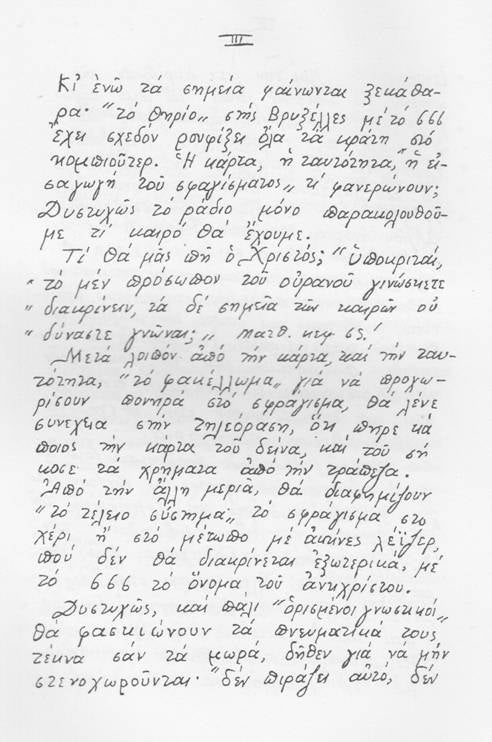 III
Κι ἐνῶ τά σημεία φαίνωνται ξεκάθα-
ρα· "τό θηρίο" στής Βρυξέλλες μέ τό 666
ἔχει σχεδόν ρουφίξει ὅλα τά κράτη στό
κομπιοῦτερ. Ἡ κάρτα, ἡ ταυτότητα, "ἡ εἰ-
σαγωγή τοῦ σφαγίσματος„ τί φανερώνουν;
Δυστυχῶς τό ράδιο μόνο παρακολουθοῦ-
με τί καιρό θά ἔχουμε.
Τί θά μᾶς πῆ ὁ Χριστός; "ὑποκριταί,
"τό μέν πρόσωπον τοῦ οὐρανοῦ γινώσκετε
"διακρίνειν, τά δέ σημεῖα τῶν καιρῶν οὐ
"δύναστε γνῶναι;„ Ματθ. κεφ 65.!
Μετά λοιπόν ἀπό τήν κάρτα, καί τήν ταυ-
τότητα, "τό φακέλλωμα„ γιά νά προχω-
ρίσουν πονηρά στό σφράγισμα, θά λένε
συνεχεια στήν τηλεόραση, ὅτι πηρε κά
ποιος τήν κάρτα τοῦ δείνα, καί τοῦ σή
κοσε τά χρήματα ἀπό τήν τράπεζα.
Ἀπό τήν ἄλλη μεριά, θά διαφημίζουν
"τό τέλειο σύστημα„ τό σφράγισμα στο
χέρι ἤ στό μέτωπο μέ ἀκτίνες λέϊζερ,
πού δέν θά διακρίνεται ἐξωτερικά, μέ
τό 666 τό ὄνομα τοῦ ἀντιχρίστου.
Δυστυχῶς, καί πάλι "ὁρισμένοι γνωστικοί„
θά φασκιώνουν τά πνευματικά τους
τέκνα σάν τά μωρά, δῆθεν γιά νά μήν
στενοχωροῦνται· "δέν πιράζει αὐτό, δέν